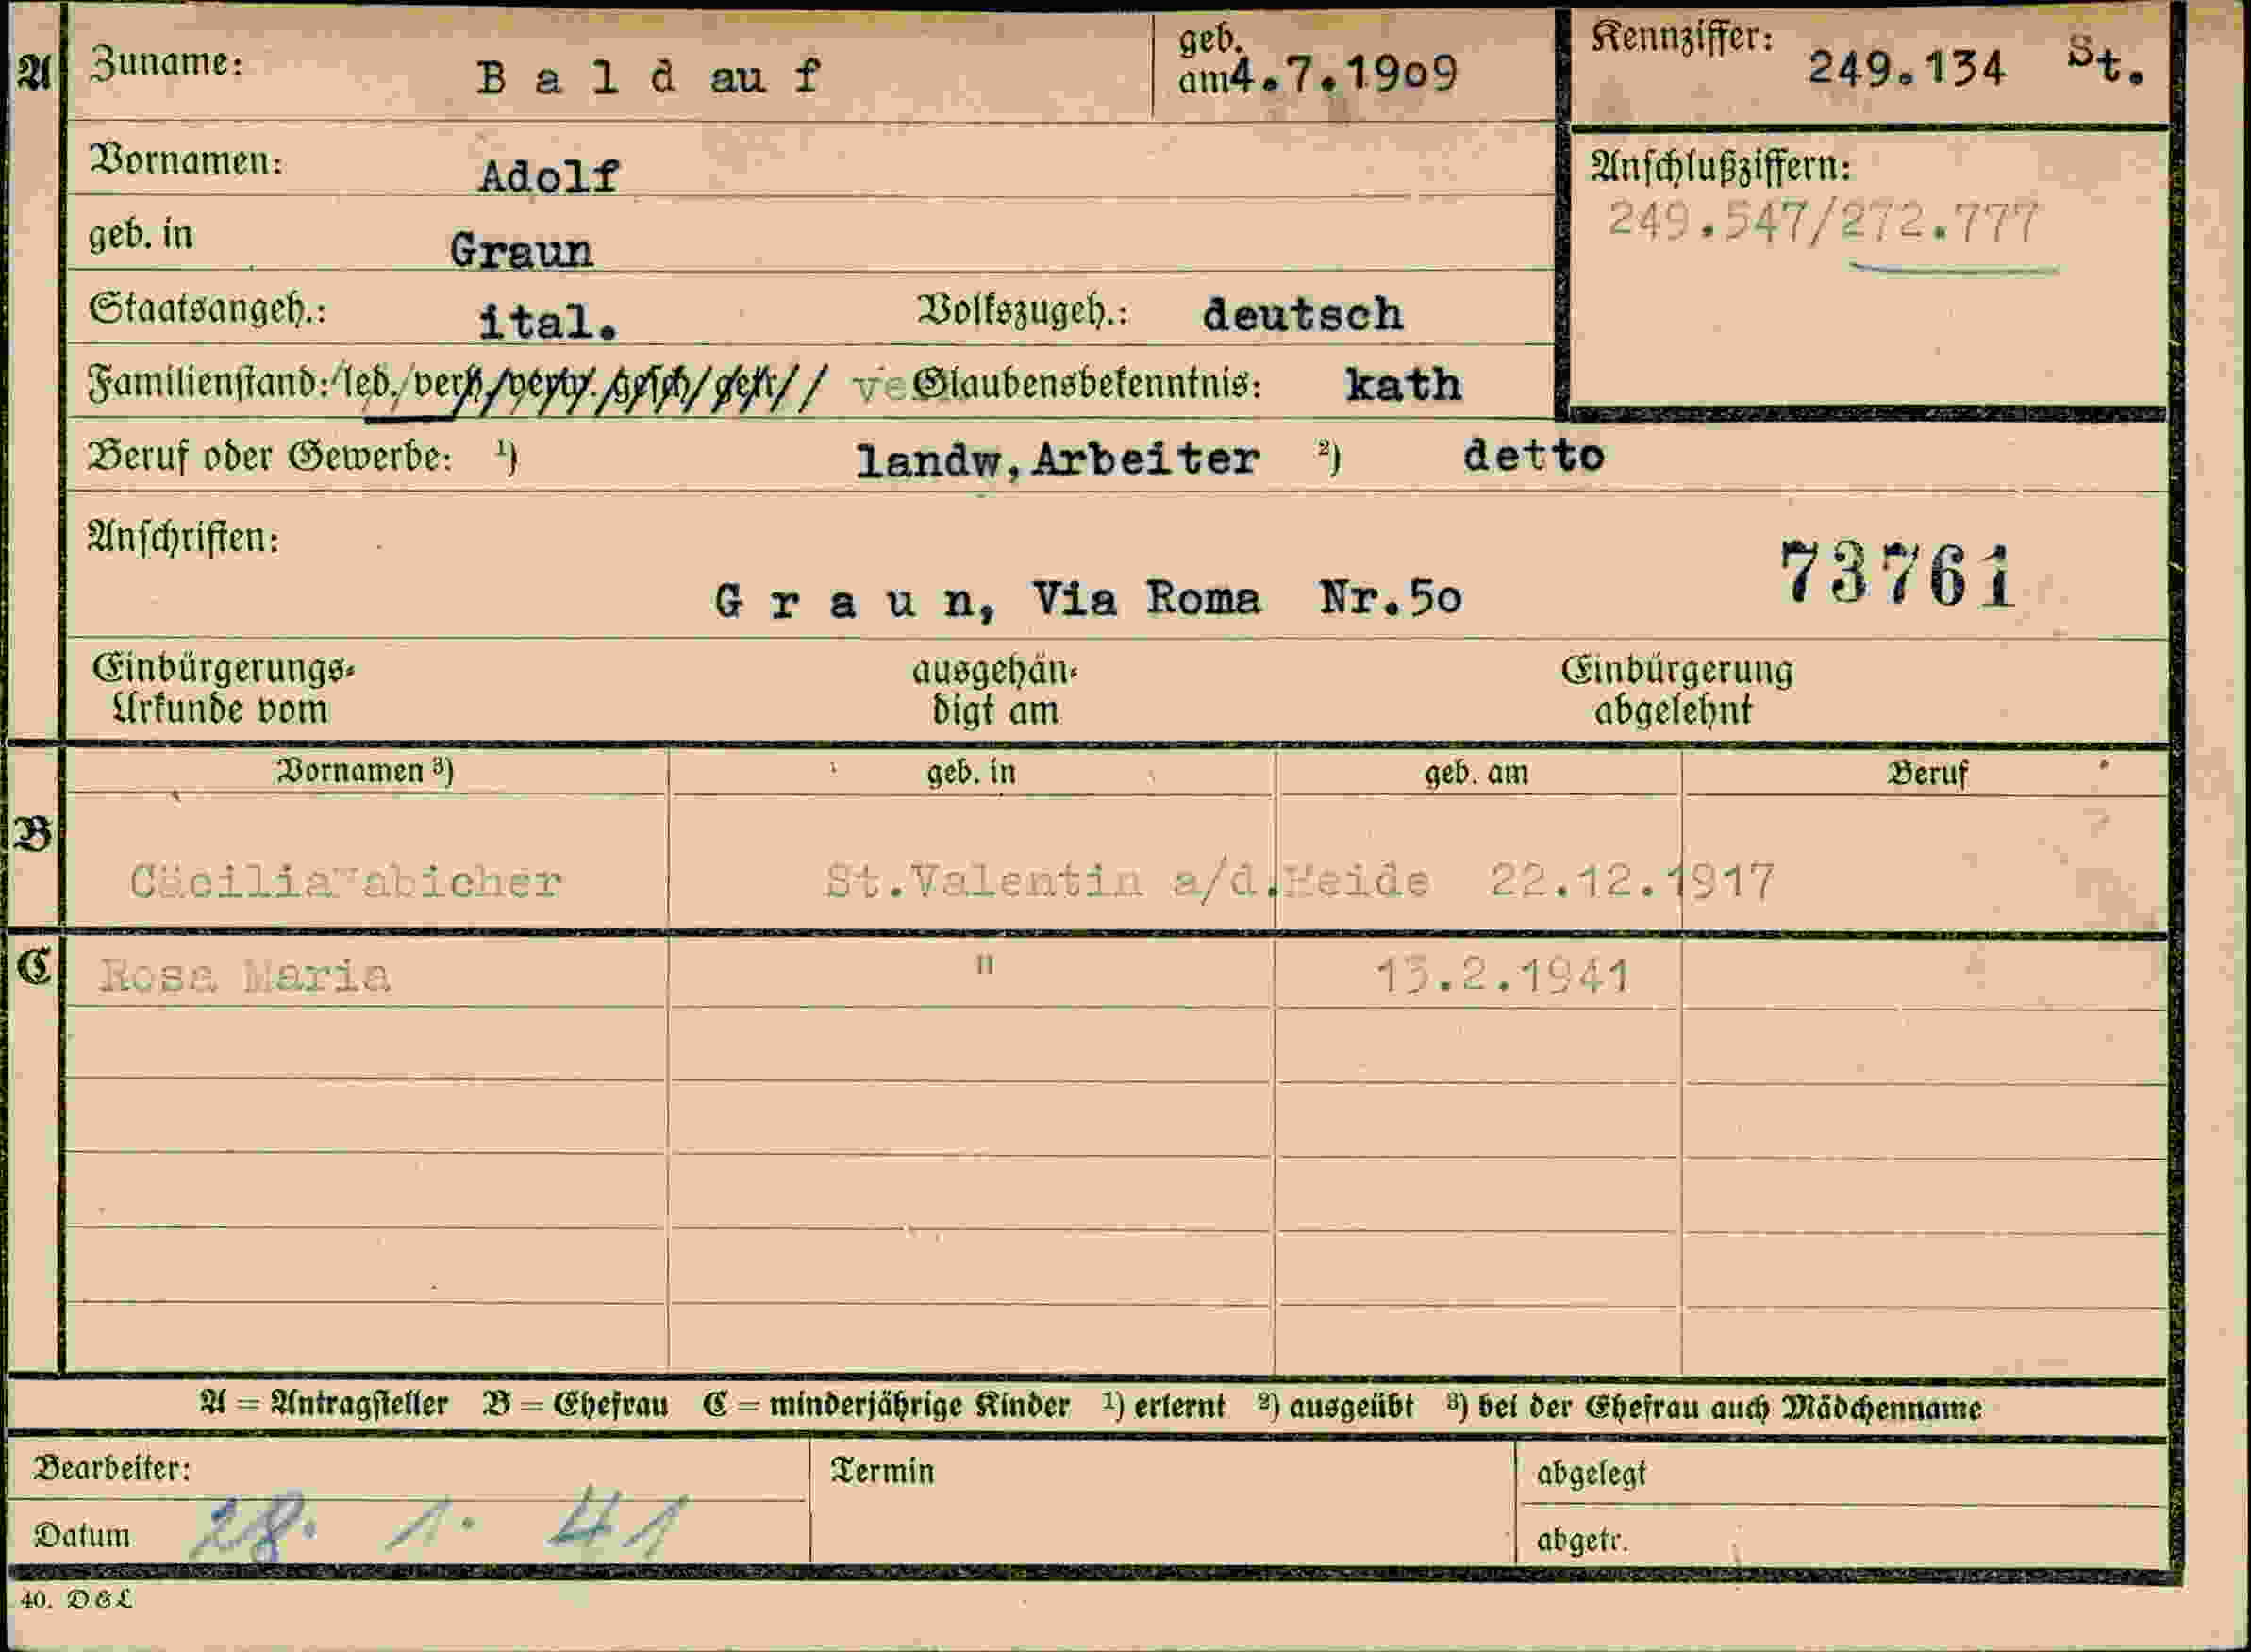 A Zuname: Baldauf geb. am 4.7.1909 Kennziffer: 249.134 St.
Vornamen: Adolf Anschlußziffern:
249.547/272.777
geb. in Graun
Staatsangeh.: ital. Volkszugeh.: deutsch
Familienstand: led./verh./verw./gesch/getr// ve Glaubensbekenntnis: kath
Beruf oder Gewerbe: ¹) landw, Arbeiter ²) detto
Anschriften:
Graun, Via Roma Nr.50 73761
Einbürgerungs- ausgehän- Einbürgerung
Urkunde vom digt am abgelehnt
Vornamen ³) geb. in geb. am Beruf
B
Cäcilia St.Valentin a/d.Heide 22.12.1917
C Rosa Maria " 13.2.1941
A = Antragsteller B = Ehefrau C = minderjährige Kinder ¹) erlernt ²) ausgeübt ³) bei der Ehefrau auch Mädchenname
Bearbeiter: Termin abgelegt
Datum 28. 1. 41 abgetr.
40. D&L